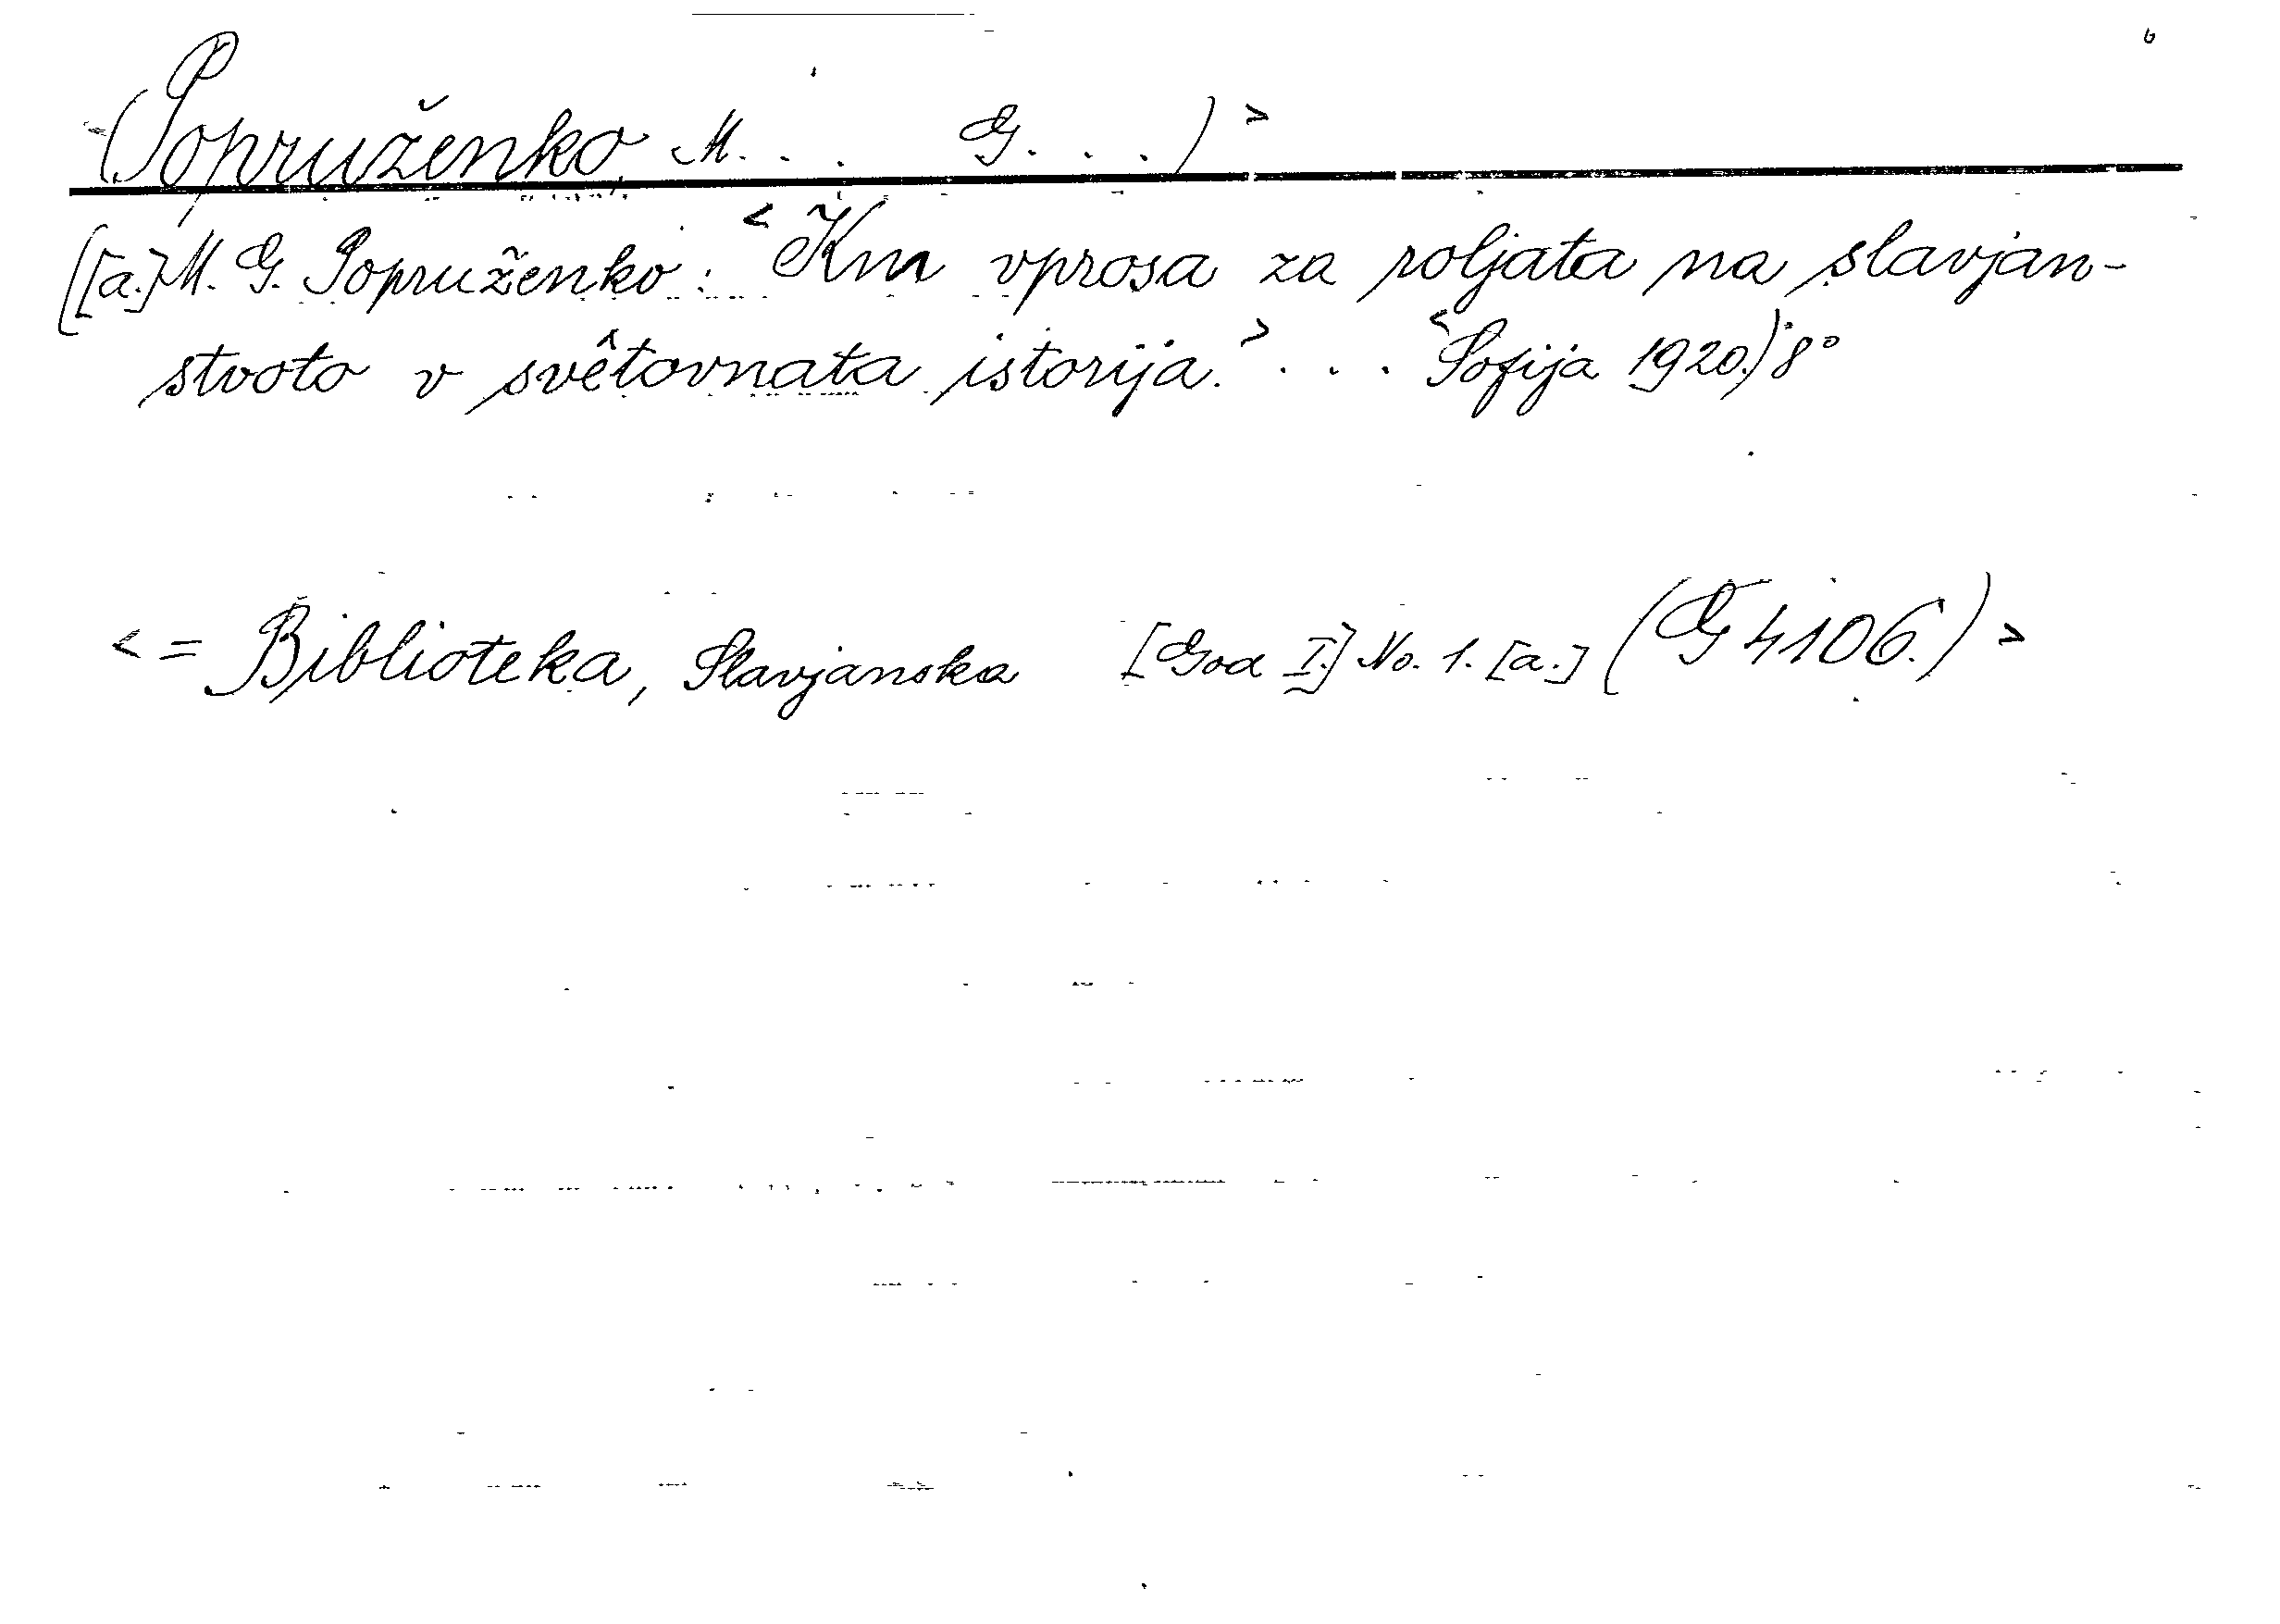 <(Popruženko, M... G...)>
([a.] M. G. Popruženko: <Km vprosa za roljata na slavjan-
stvoto v světovnata istorija.> ... <Sofija 1920.) 8°
<= Biblioteka, Slavjanska [God I.] No. 1. [a.] (G 4106.)>